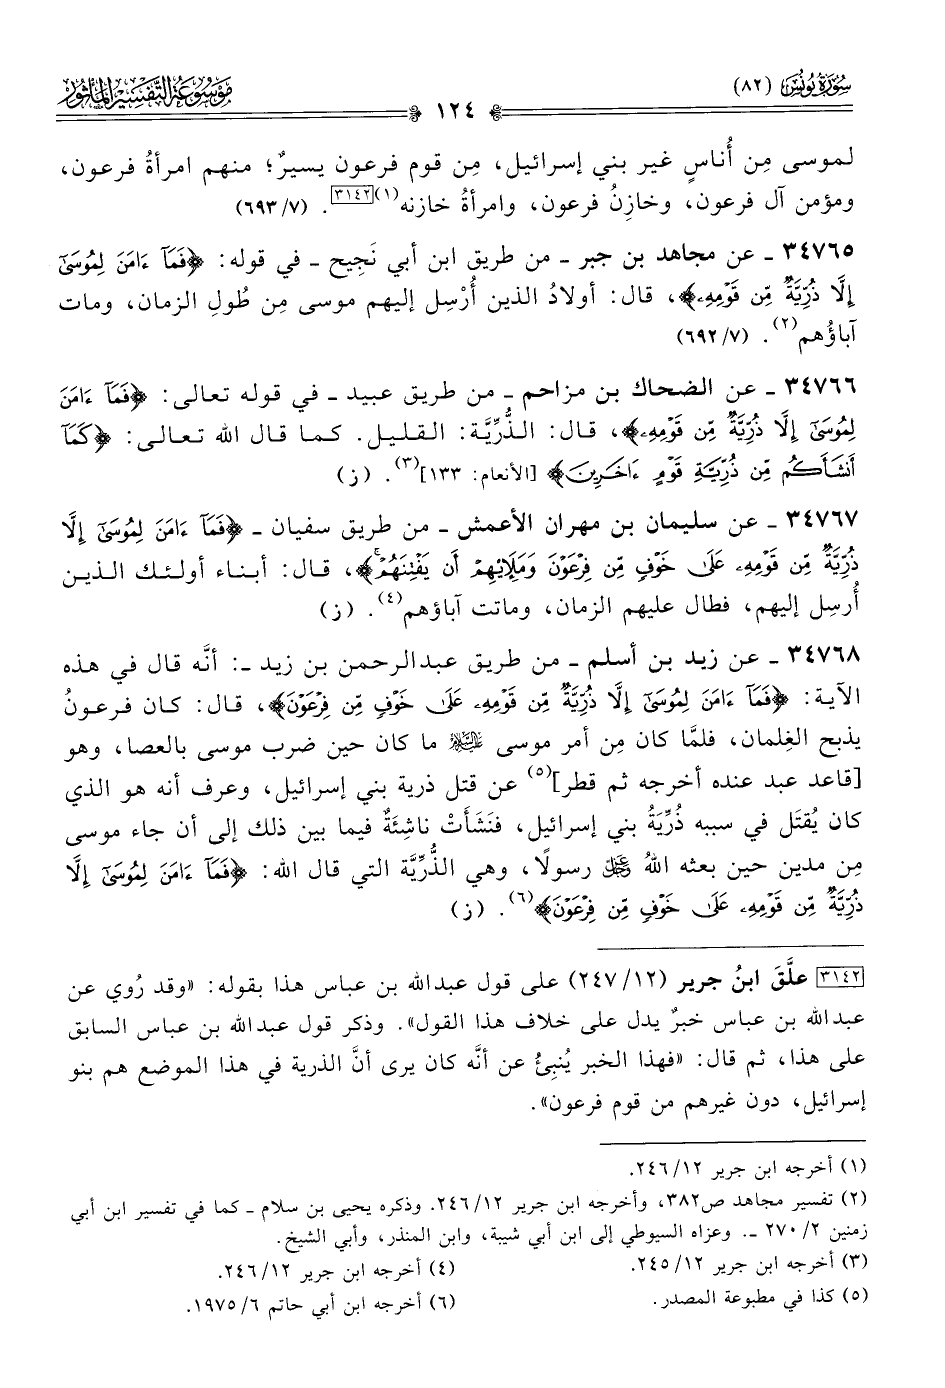 سُورَةُ يُونُسَ (٨٢)
١٢٤
مَوْسُوعَةُ التَّفْسِيرِ المَأْثُورِ
لموسى مِن أُناسٍ غير بني إسرائيل، مِن قوم فرعون يسيرٌ؛ منهم امرأةُ فرعون،
ومؤمن آل فرعون، وخازِنُ فرعون، وامرأةُ خازنه(١)[٣١٤٢]. (٦٩٣/٧)
٣٤٧٦٥ ـ عن مجاهد بن جبر ـ من طريق ابن أبي نَجِيح ـ في قوله: ﴿فَمَآ ءَامَنَ لِمُوسَىٰٓ
إِلَّا ذُرِّيَّةٌ مِّن قَوْمِهِۦ﴾، قال: أولادُ الذين أُرْسِل إليهم موسى مِن طُولِ الزمان، ومات
آباؤُهم(٢). (٦٩٢/٧)
٣٤٧٦٦ ـ عن الضحاك بن مزاحم ـ من طريق عبيد ـ في قوله تعالى: ﴿فَمَآ ءَامَنَ
لِمُوسَىٰٓ إِلَّا ذُرِّيَّةٌ مِّن قَوْمِهِۦ﴾، قال: الذُّرِّيَّة: القليل. كما قال الله تعالى: ﴿كَمَآ
أَنشَأَكُم مِّن ذُرِّيَّةِ قَوْمٍ ءَاخَرِينَ﴾ [الأنعام: ١٣٣](٣). (ز)
٣٤٧٦٧ ـ عن سليمان بن مهران الأعمش ـ من طريق سفيان ـ ﴿فَمَآ ءَامَنَ لِمُوسَىٰٓ إِلَّا
ذُرِّيَّةٌ مِّن قَوْمِهِۦ عَلَىٰ خَوْفٍ مِّن فِرْعَوْنَ وَمَلَإِيْهِمْ أَن يَفْتِنَهُمْۚ﴾، قال: أبناء أولئك الذين
أُرسِل إليهم، فطال عليهم الزمان، وماتت آباؤهم(٤). (ز)
٣٤٧٦٨ ـ عن زيد بن أسلم ـ من طريق عبدالرحمن بن زيد ـ: أنَّه قال في هذه
الآية: ﴿فَمَآ ءَامَنَ لِمُوسَىٰٓ إِلَّا ذُرِّيَّةٌ مِّن قَوْمِهِۦ عَلَىٰ خَوْفٍ مِّن فِرْعَوْنَ﴾، قال: كان فرعونُ
يذبح الغِلمان، فلمَّا كان مِن أمر موسى عليه السلام ما كان حين ضرب موسى بالعصا، وهو
[قاعد عبد عنده أخرجه ثم قطر](٥) عن قتل ذرية بني إسرائيل، وعرف أنه هو الذي
كان يُقتَل في سببه ذُرِّيَةُ بني إسرائيل، فنَشَأَتْ ناشِئَةٌ فيما بين ذلك إلى أن جاء موسى
مِن مدين حين بعثه اللهُ عز وجل رسولًا، وهي الذُّرِّيَّة التي قال الله: ﴿فَمَآ ءَامَنَ لِمُوسَىٰٓ إِلَّا
ذُرِّيَّةٌ مِّن قَوْمِهِۦ عَلَىٰ خَوْفٍ مِّن فِرْعَوْنَ﴾(٦). (ز)
[٣١٤٢] علَّقَ ابنُ جرير (٢٤٧/١٢) على قول عبدالله بن عباس هذا بقوله: «وقد رُوي عن
عبدالله بن عباس خبرٌ يدل على خلاف هذا القول». وذكر قول عبدالله بن عباس السابق
على هذا، ثم قال: «فهذا الخبر يُنبِئُ عن أنَّه كان يرى أنَّ الذرية في هذا الموضع هم بنو
إسرائيل، دون غيرهم من قوم فرعون».
(١) أخرجه ابن جرير ٢٤٦/١٢.
(٢) تفسير مجاهد ص٣٨٢، وأخرجه ابن جرير ٢٤٦/١٢. وذكره يحيى بن سلام ـ كما في تفسير ابن أبي
زمنين ٢/ ٢٧٠ ـ. وعزاه السيوطي إلى ابن أبي شيبة، وابن المنذر، وأبي الشيخ.
(٣) أخرجه ابن جرير ٢٤٥/١٢. (٤) أخرجه ابن جرير ٢٤٦/١٢.
(٥) كذا في مطبوعة المصدر. (٦) أخرجه ابن أبي حاتم ١٩٧٥/٦.